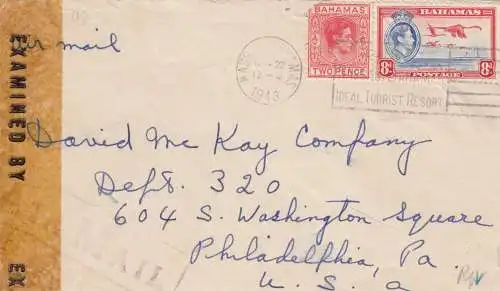 EXAMINED BY
EX
air mail
BAHAMAS
TWO PENCE
BAHAMAS
8d
8d
POSTAGE
1943
IDEAL TOURIST RESORT
David Mc Kay Company
Dept. 320
604 S. Washington Square
Philadelphia, Pa.
U. S. a